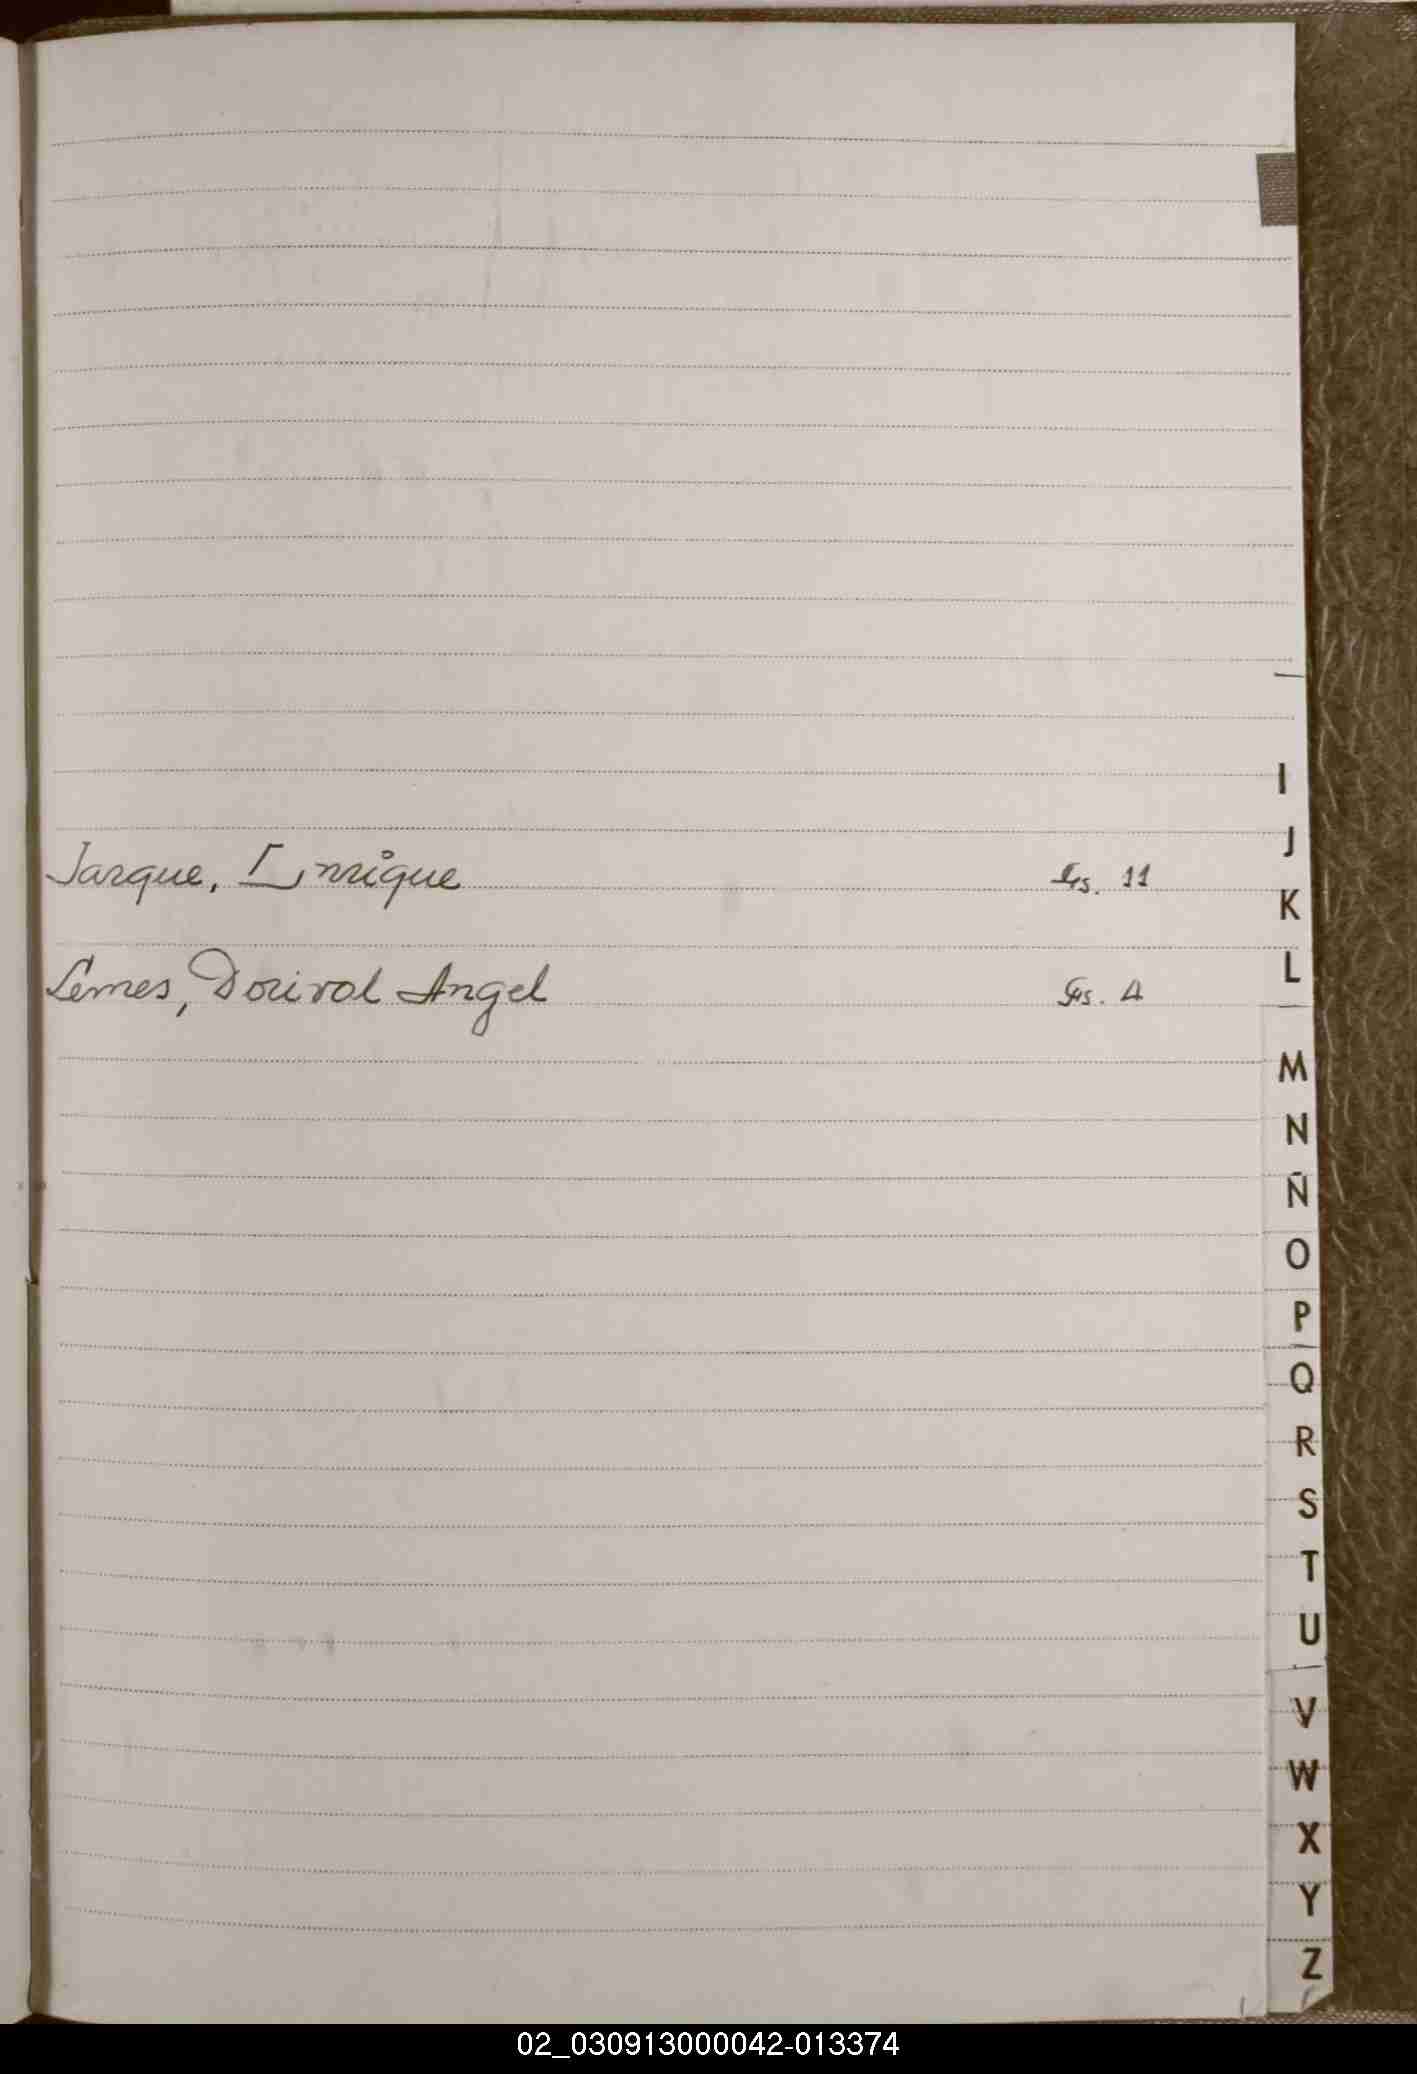 I
J
Jarque, Enrique Fs. 11
K
L
Lemes, Dorival Angel Fs. 4
M
N
Ñ
O
P
Q
R
S
T
U
V
W
X
Y
Z
02_030913000042-013374